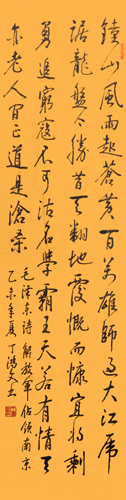 鐘山風雨起蒼黄百萬雄師过大江虎
踞龍盤今勝昔天翻地覆慨而慷宜将剩
勇追窮寇不可沽名學霸王天若有情天
亦老人间正道是滄桑
毛泽东诗 解放軍佔领南京
乙未年夏 丁